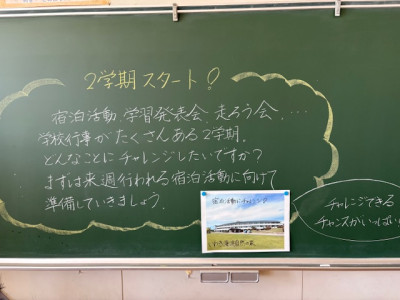 2学期スタート!
宿泊活動、学習発表会、走ろう会、...
学校行事がたくさんある2学期。
どんなことにチャレンジしたいですか?
まずは来週行われる宿泊活動に向けて
準備していきましょう。
宿泊活動にチャレンジ
いわき海浜自然の家
チャレンジできる
チャンスがいっぱい